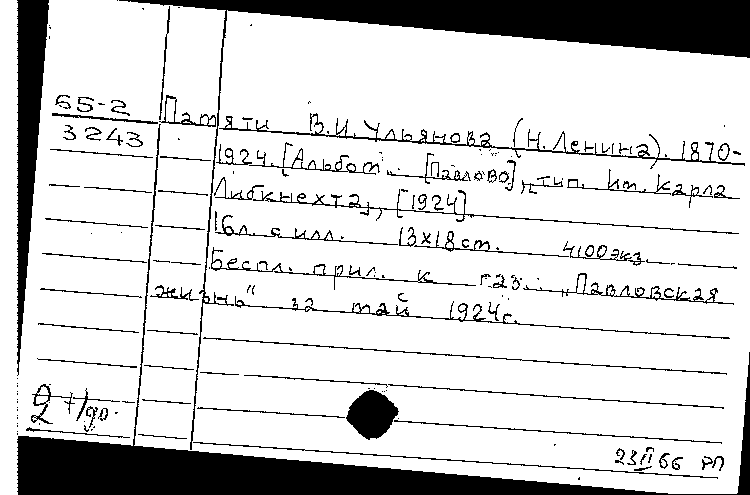 65-2
3243
Памяти В.И. Ульянова (Н. Ленина). 1870-
1924. [Альбом]. [Павлово], „тип. им. Карла
Либкнехта", [1924].
16л. с илл. 13х18см. 4100экз.
Беспл. прил. к газ.: „Павловская
жизнь" за май 1924г.
2
23 II 66 РП